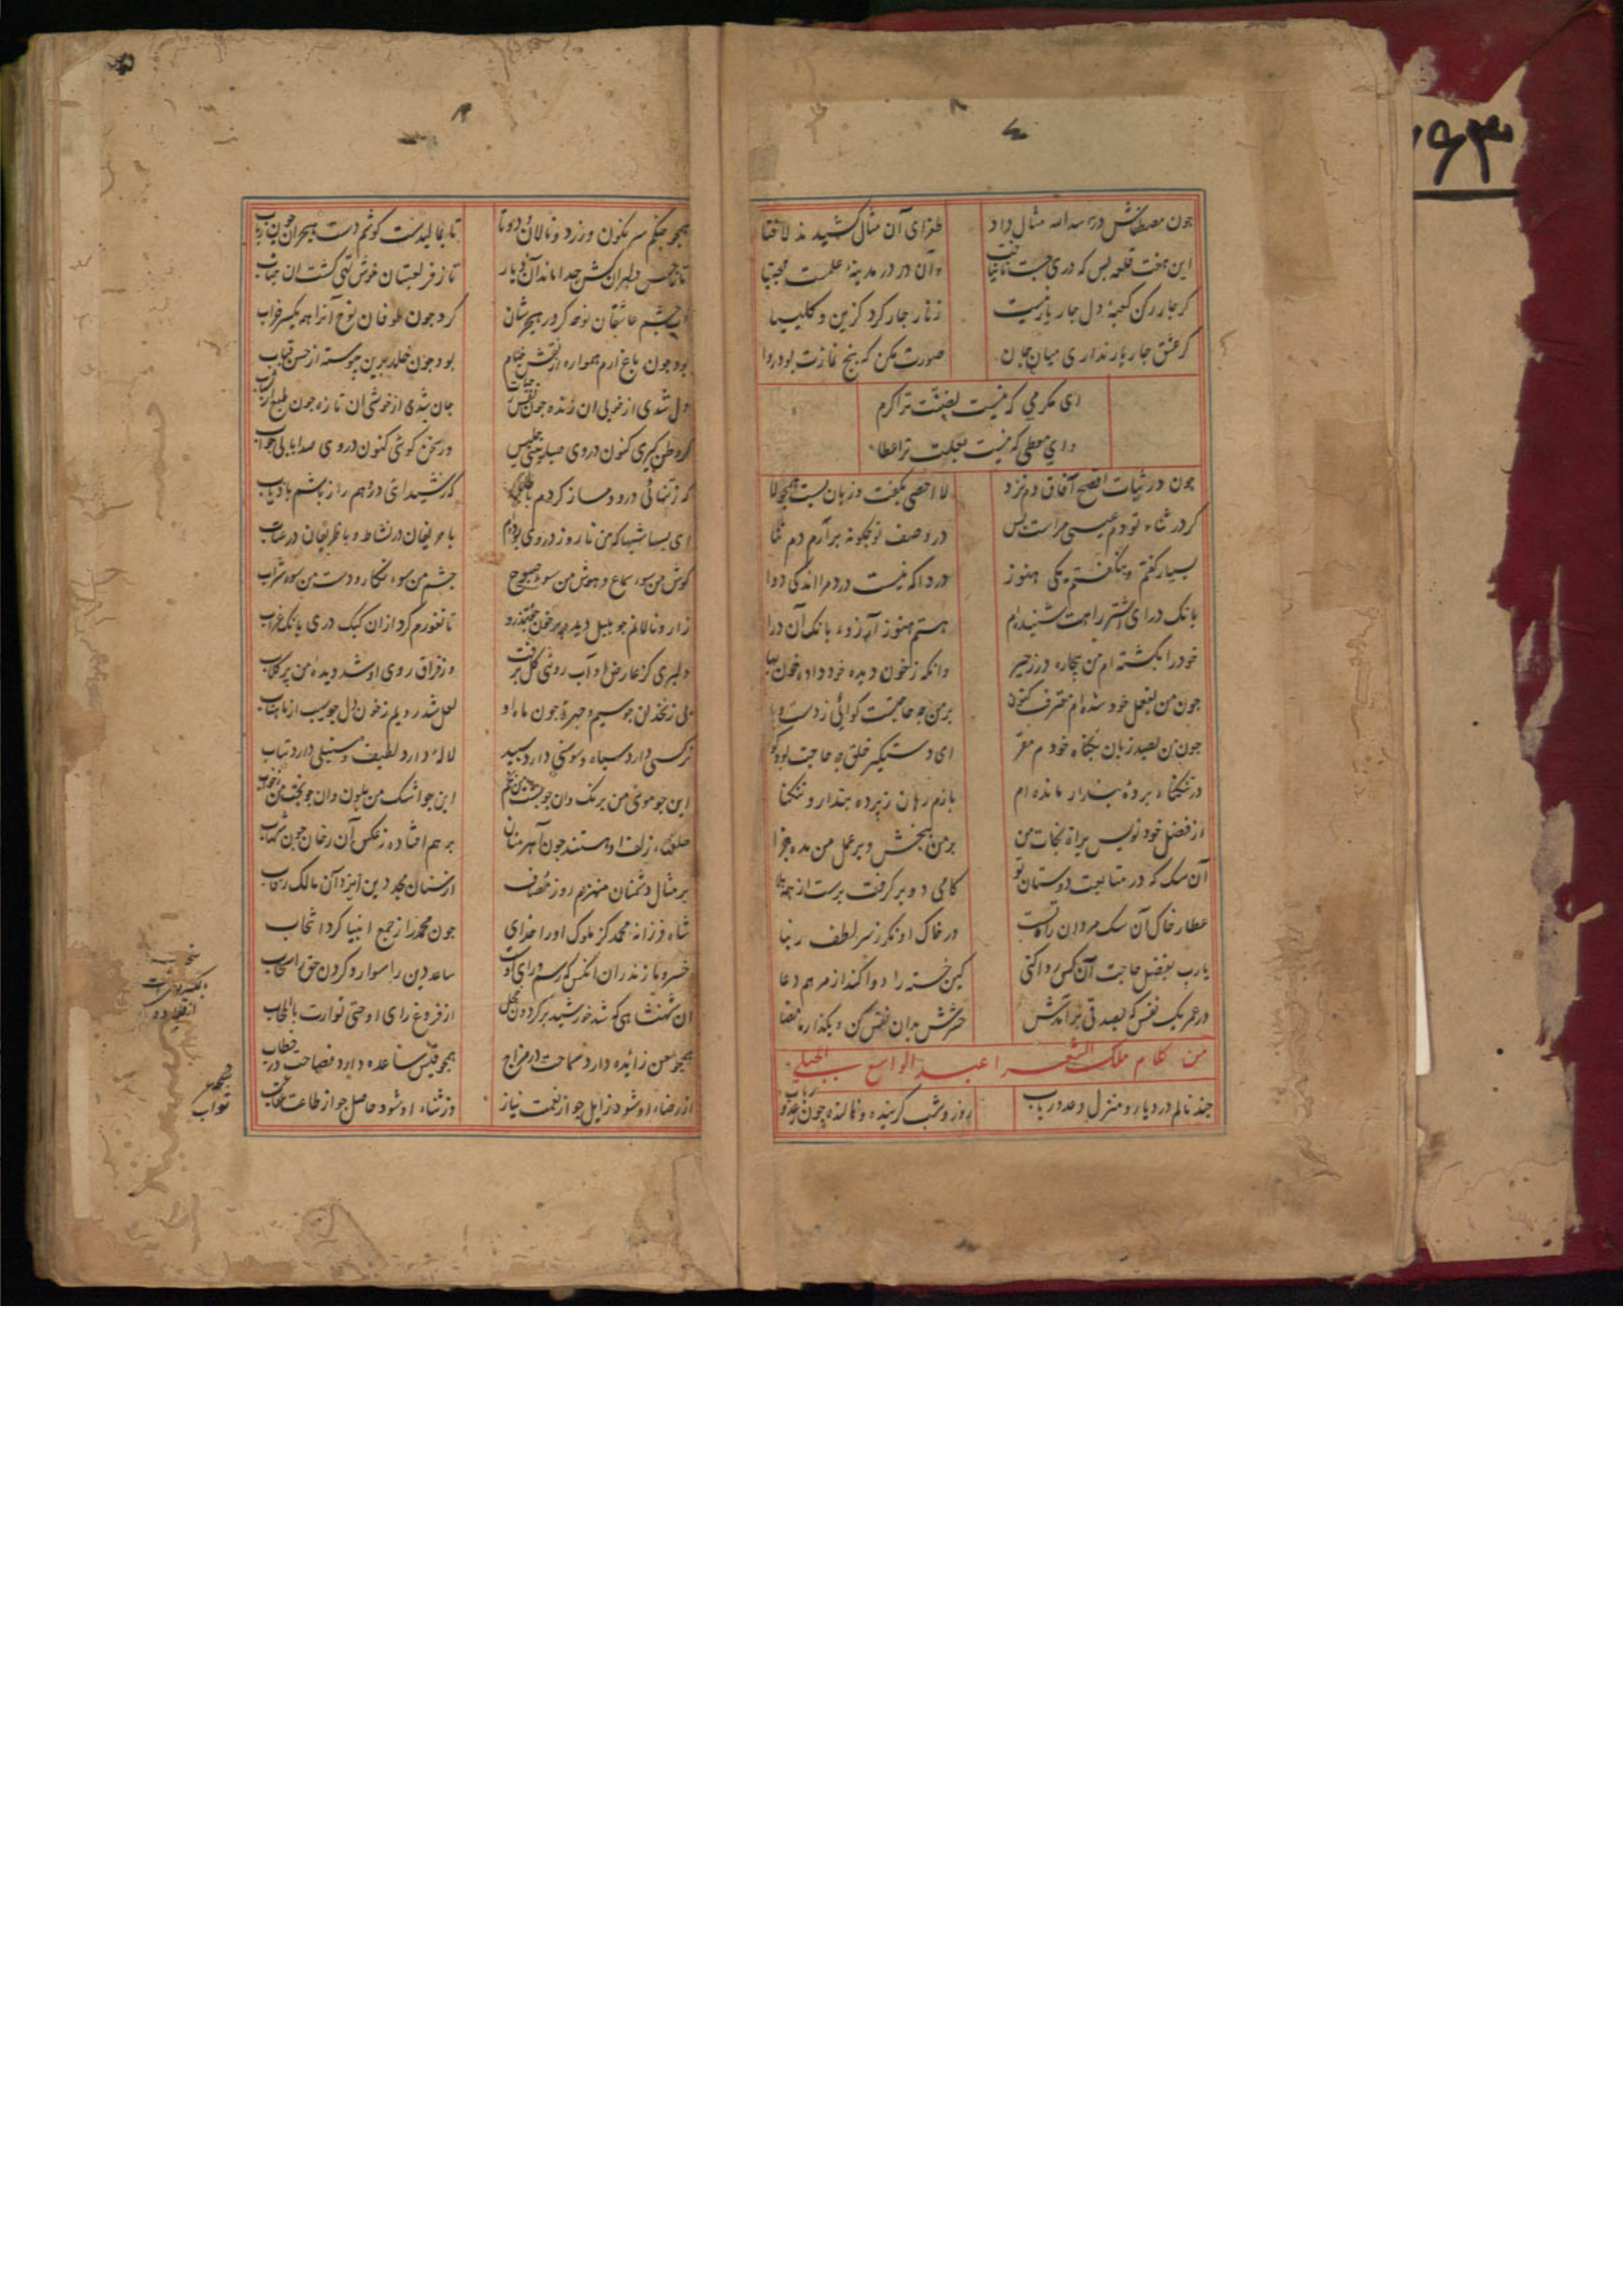 چون مصطفاش در اسد الله مثال داد
طغرای آن مثال کشید ند لا فتا
این هفت قلعه بس که دری جست
وآن در در مدینهٔ علمست مجتبا
کر جار رکن کعبهٔ دل جار یار نیست
زنار جار کرد کزین و کلیسا
کر عشق جار یار نداری میان جان
صورت مکن که پنج نمازت بود روا
ای مکرمی که نیست نصیبت ترا کرم
وای معطی که نیست بعلت ترا عطا
جون در ثبات افصح آفاق دم نزد
لا احصی بگفت و زبان بست
کر در ثناء تو دم عیسی مراست بس
در وصف تو چگونه برآرم دم ثنا
بسیار گفتم و بنگفتم یکی هنوز
دردا که نیست درد مرا اندکی دوا
بانک درای اشتر راهت شنیده‌ام
هستم هنوز آرزوء بانک آن درا
خود را بکشته ام من بیچاره در زحیر
وانکه ز خون دیده خود داده خون بها
جون من بفعل خود شده ام معترف کنون
بر من چه حاجتست کوائی ز دست و پا
جون من بصد زبان بکناه خود م مقر
ای دستگیر خلق چه حاجت بود
در تنکناء پردهٔ پندار مانده ام
بازم رهان ز پرده پندار و تنکنا
از فضل خود نویس براة نجات من
بر من ببخش و بر عمل من مده جزا
آن سک که در متابعت دوستان تو
کامی دو بر کرفت برست از همه
عطار خاک آن سک مردان راه تست
در خاک او نکر ز سر لطف ربنا
یارب بفضل حاجت آن کس روا کنی
کین خسته را دوا کند از مرهم دعا
در عمر یک نفس که بصدقی برآمدش
حشرش بدان نفس کن و بگذار ما مضا
من کلام ملک الشعرا عبد الواسع الجبلی
جند نالم در دیار و منزل دعد و رباب
روز و شب کرینده و نالنده چون رعد و
همچو جنکم سرنکون و زرد و نالان و دوتا
تا بمالیدست کوشم دست هجران چون رباب
تا ز فر لعبتان خوش تهی کشت ان
از چشم عاشقان نوحه کر در هجرشان
کرد جون طوفان نوح آنرا همه یکسر خراب
بود جون باغ ارم همواره از نقش خیام
بود جون خلد برین پیوسته از حسن قباب
دل شدی از خوبی ان زنده جون نفس
جان شدی از خوشی ان تازه جون طبع
کر وطن کیری کنون در وی
ور سخن کوئی کنون در وی صدا یابی جواب
که ز تنهائی درو دمساز کردم با
که ز شیدائی درو هم راز باشم با ذیاب
ای بسا شبها که من تا روز در وی بوده‌ام
با حریفان در نشاط و با ظریفان در عتاب
کوش من سوء سماع و هوش من سوء صبوح
چشم من سوء نکار و دست من سوء شراب
زار و نالانم جو بلبل دیده پر خون جون تذرو
تا نفورم کرد از ان کبک دری بانک غراب
دلبری کز عارض او آب روی کل برفت
وز فراق روی او شد دیده من پر کلاب
بی زنخدان جو سیم و جهرهٔ جون ماه او
لعل شد رویم ز خون دل جو سیب از ماهتاب
نرکسی دارد سیاه و سوسنی دارد سپید
لالهٔ دارد لطیف و سنبلی دارد بتاب
این جو موی من برنک وان جو پشت من بخم
این جو اشک من بلون وان جو بخت من
حلقهاء زلف او هستند جون آهرمنان
بر هم افتاده ز عکس آن رخان جون شهاب
بر مثال دشمنان منهزم روز مصاف
از سنان مجد دین ایزد آن مالک رقاب
شاه فرزانه محمد کز ملوک او را خدای
جون محمد را ز جمع انبیا کرد انتخاب
خسرو مازندران انکس که رسم و رای او
ساعد دین را سوار و کردن حق را سخاب
ان شهنشاهی که شد خورشید بر کردون خجل
از فروغ رای او حتی توارت بالحجاب
همچو معن زائده دارد سماحت در مزاج
همجو قیس ساعده دارد فصاحت در خطاب
از رضاء او شود زایل جو از نعمت نیاز
وز ثناء او شود حاصل جو از طاعت
سخاب
بکسر
از قلاده
صحیح
ثواب